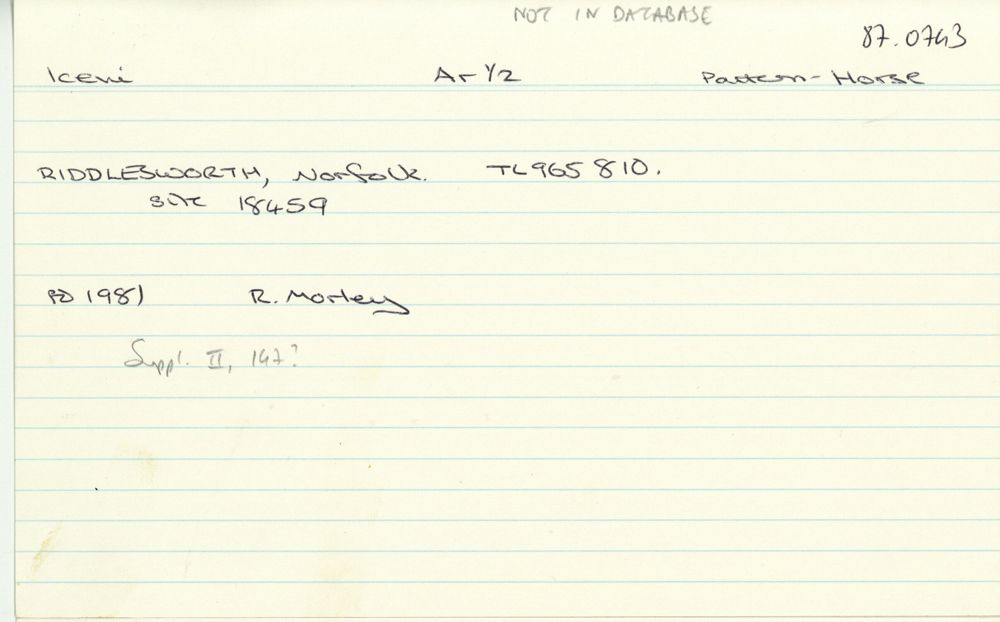 NOT IN DATABASE
87.0743
Iceni Ar 1/2 Pattern-Horse
RIDDLESWORTH, Norfolk. TL965 810.
site 18459
1981 R. Morley
Suppl. II, 147?